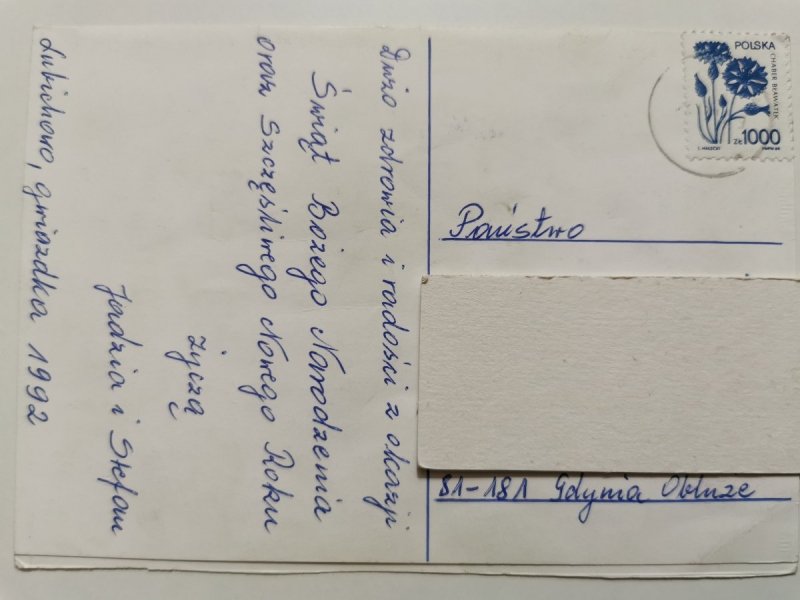 Dużo zdrowia i radości z okazji
Świąt Bożego Narodzenia
oraz Szczęśliwego Nowego Roku
życzą
Jadzia i Stefan
Lubichowo, gwiazdka 1992
POLSKA
CHABER BŁAWATEK
ZŁ 1000
Państwo
81-181 Gdynia Obłuże